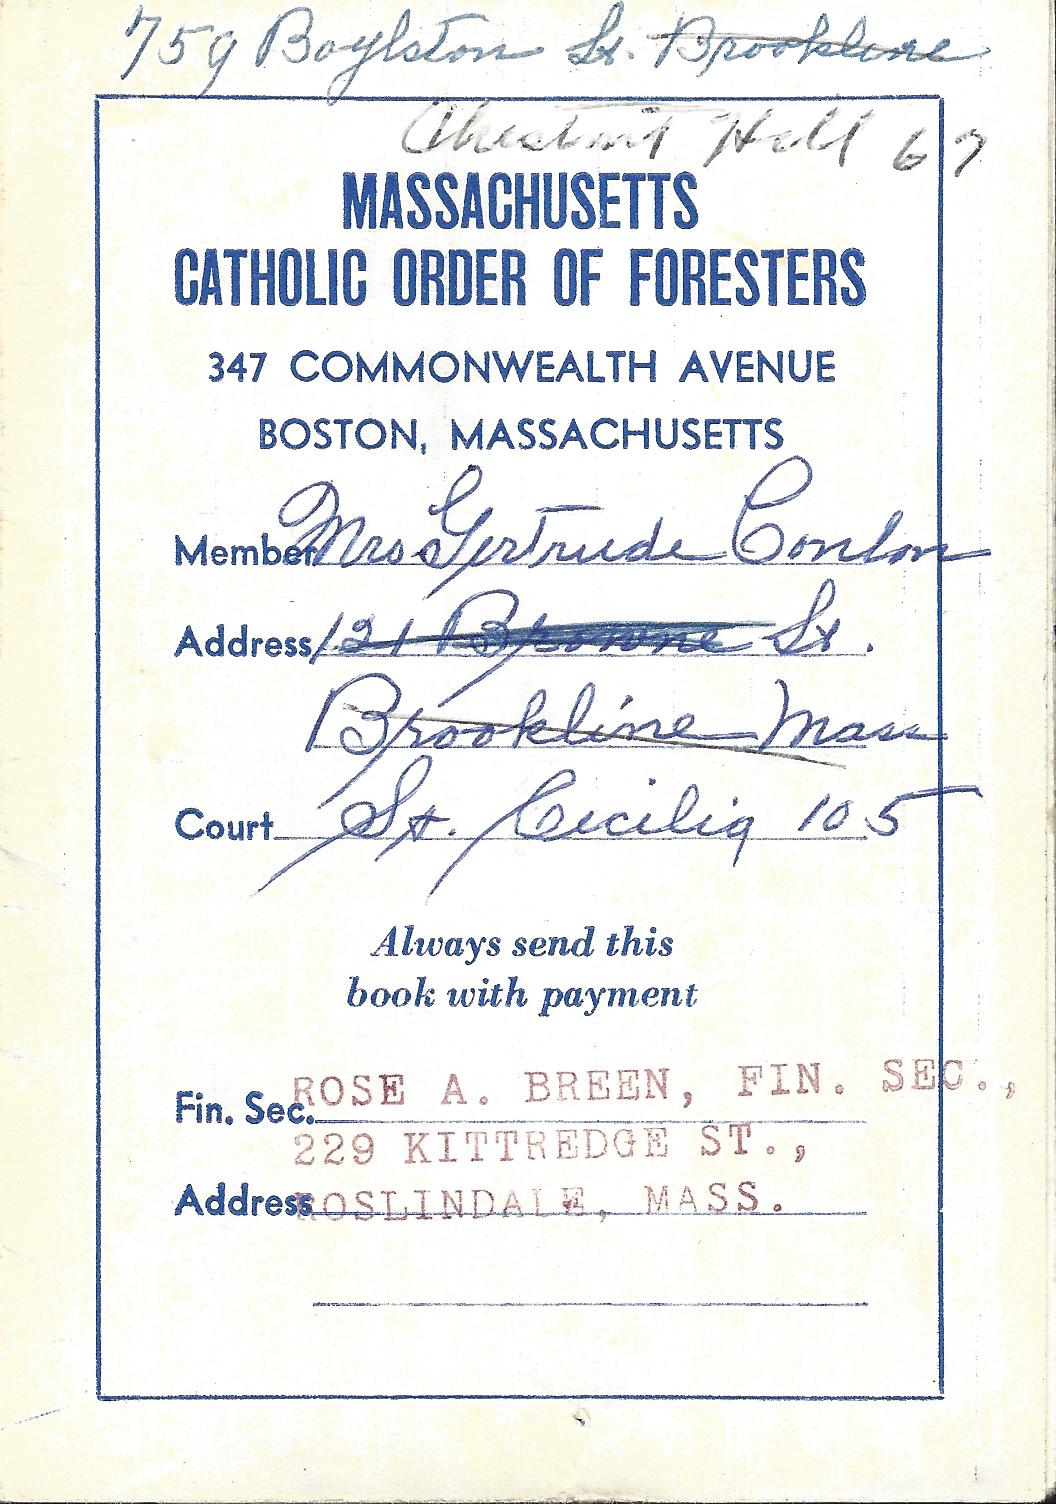 759 Boylston St. Brookline
Chestnut Hill 67
MASSACHUSETTS
CATHOLIC ORDER OF FORESTERS
347 COMMONWEALTH AVENUE
BOSTON, MASSACHUSETTS
Member Mrs Gertrude Conlon
Address 121 Browne St.
Brookline Mass
Court St. Cecilia 105
Always send this
book with payment
Fin. Sec. ROSE A. BREEN, FIN. SEC.,
229 KITTREDGE ST.,
Address ROSLINDALE, MASS.